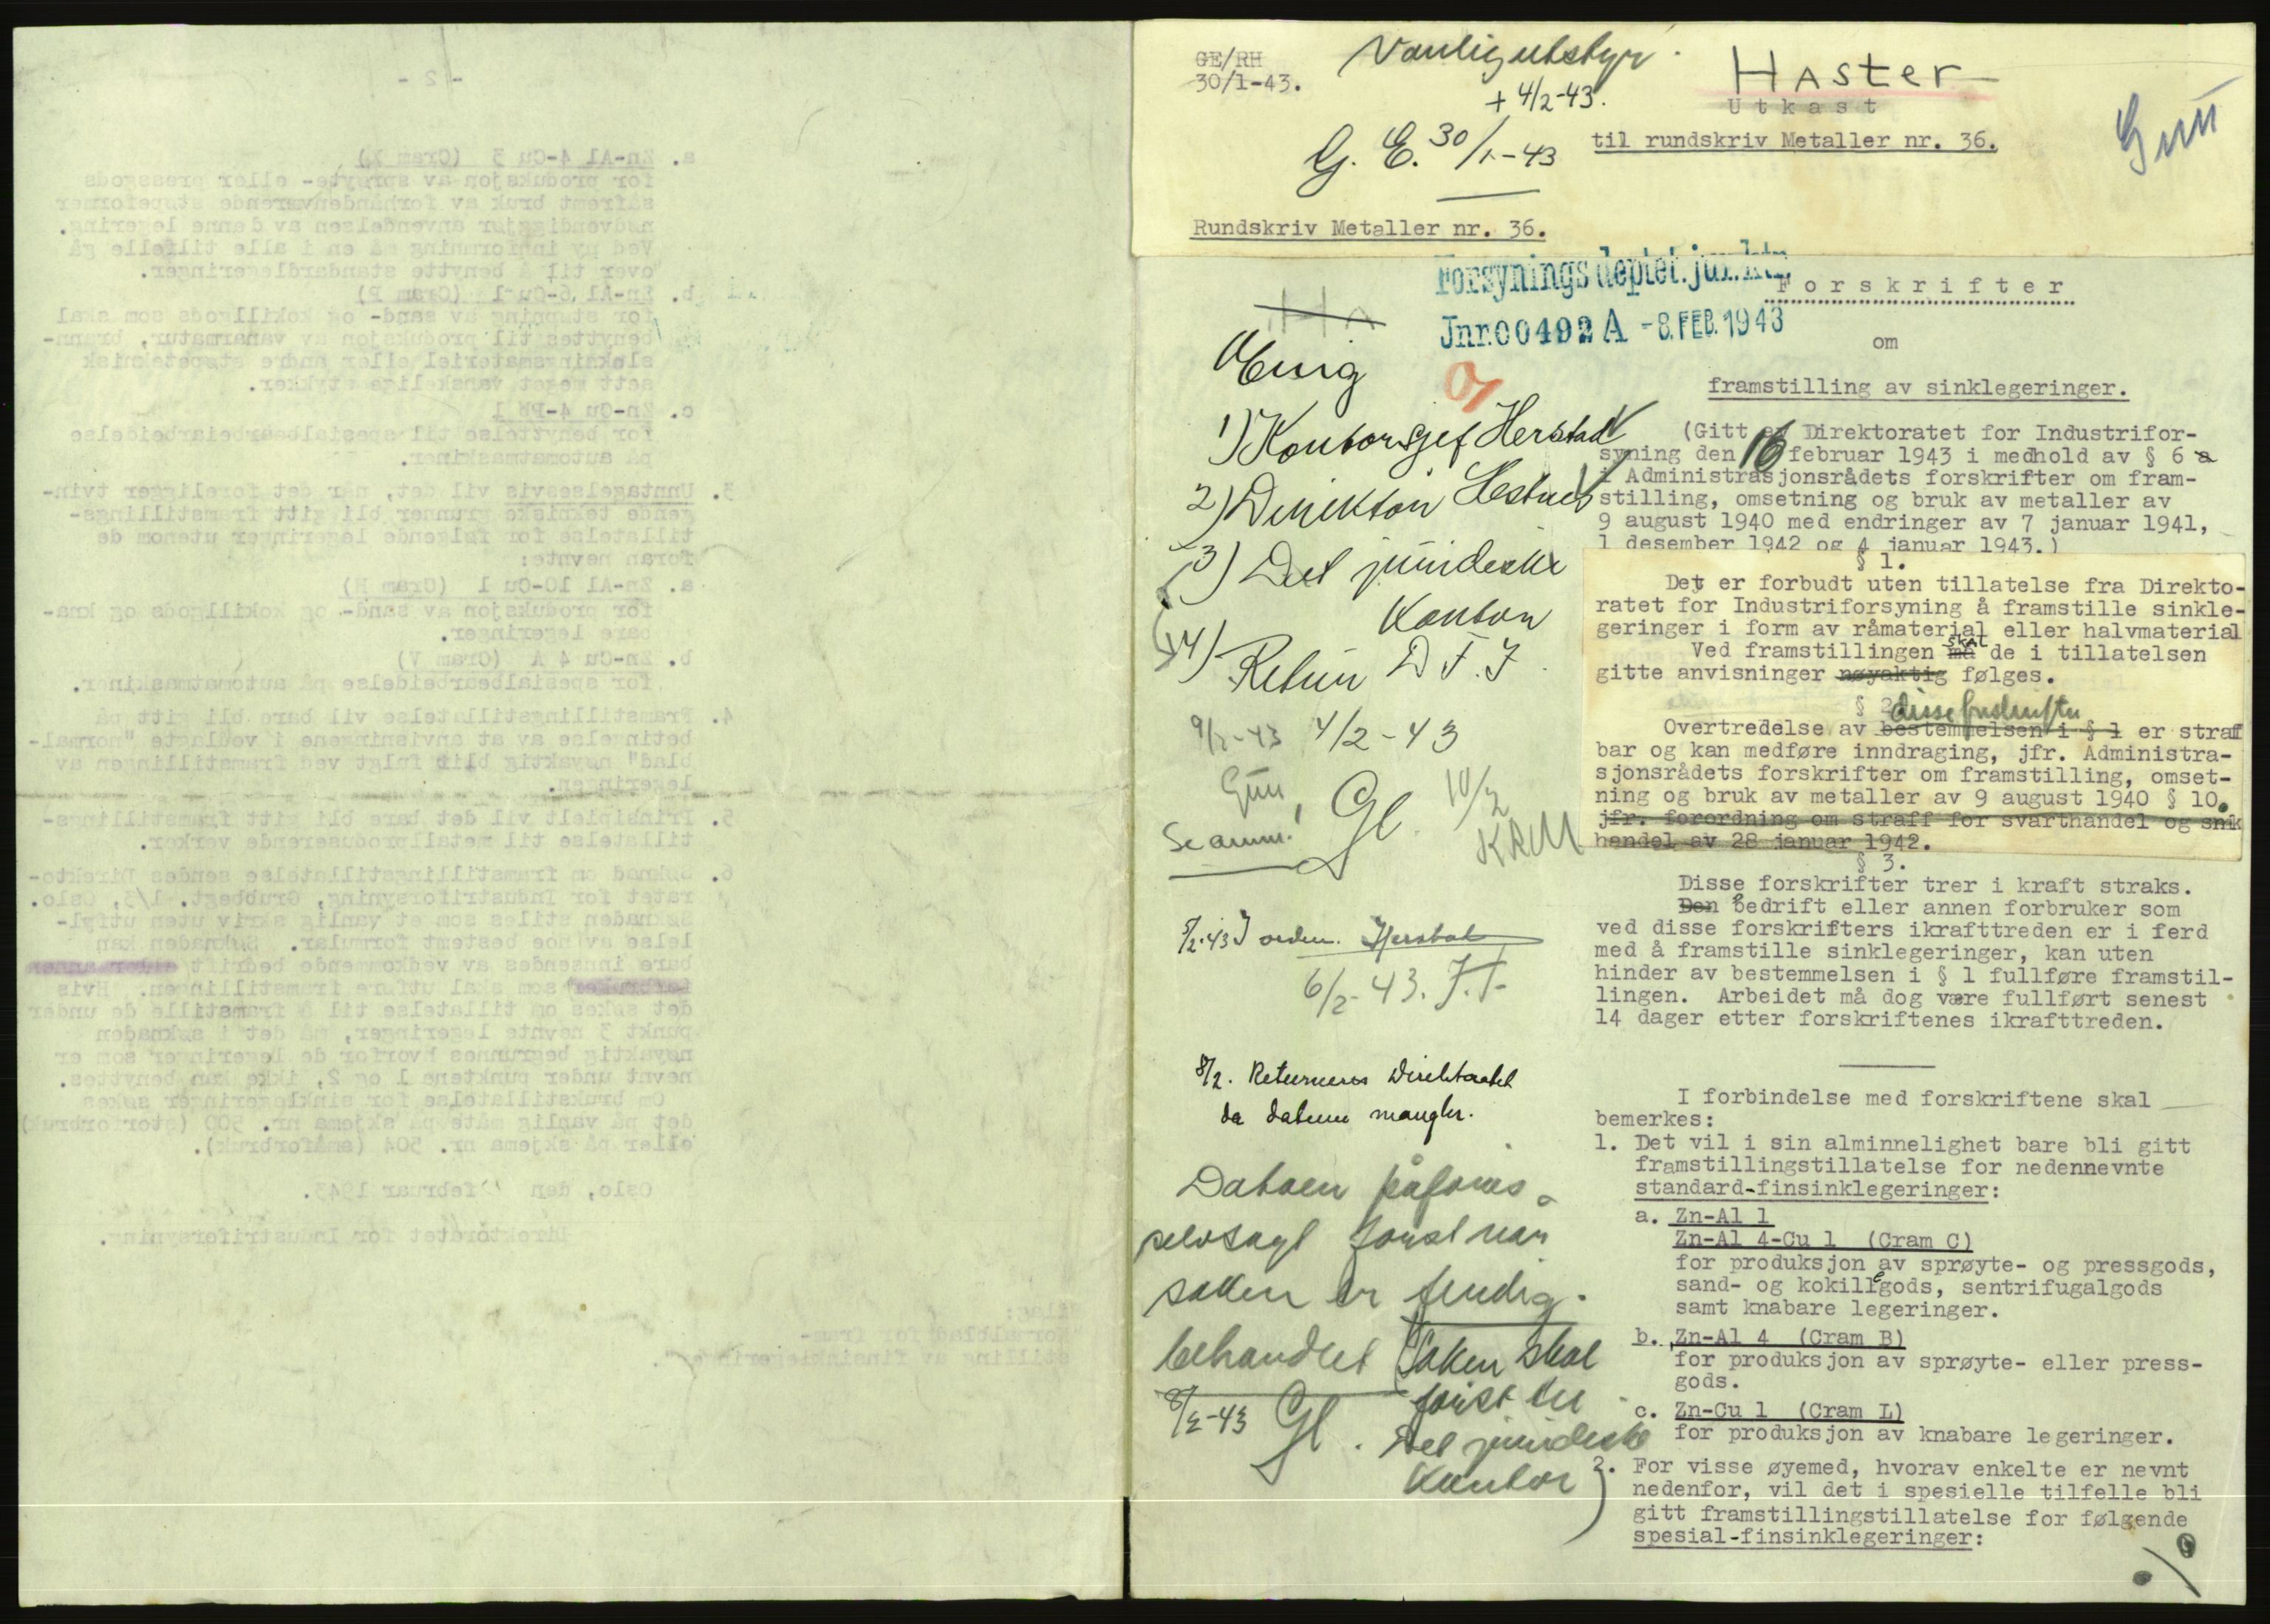 - 2 -
a. Zn-Al 4-Cu 3 (Cram X)
for produksjon av sprøyte- eller pressgods
såfremt bruk av forhåndenværende støpeformer
nødvendiggjør anvendelsen av denne legering.
Ved ny innformning må en i alle tilfelle gå
over til å benytte standardlegeringer.
b. Zn-Al 6-Cu 1 (Cram F)
for støpning av sand- og kokillgods som skal
benyttes til produksjon av vanarmatur, brann-
slukningsmateriel eller andre støpeteknisk
sett meget vanskelige stykker.
c. Zn-Cu 4-Pb 1
for benyttelse til spesialbearbeidelse
på automatmaskiner.
3. Unntagelsesvis vil det, når det foreligger tvin-
gende tekniske grunner bli gitt framstillings-
tillatelse for følgende legeringer utenom de
foran nevnte:
a. Zn-Al 10-Cu 1 (Cram H)
for produksjon av sand- og kokillgods og kna-
bare legeringer.
b. Zn-Cu 4 A (Cram V)
for spesialbearbeidelse på automatmaskiner.
4. Framstillingstillatelse vil bare bli gitt på
betingelse av at anvisningene i vedlagte "normal-
blad" nøyaktig blit fulgt ved framstillingen av
legeringen.
5. Prinsipielt vil det bare bli gitt framstillings-
tillatelse til metallproduserende verker.
6. Søknad om framstillingstillatelse sendes Direkto-
ratet for Industriforsyning, Grubbegt. 1/3, Oslo.
Søknaden stilles som et vanlig skriv uten utfyl-
lelse av noe bestemt formular. Søknaden kan
bare innsendes av vedkommende bedrift eller annen
forbruker som skal utføre framstillingen. Hvis
det søkes om tillatelse til å framstille de under
punkt 3 nevnte legeringer, må det i søknaden
nøyaktig begrunnes hvorfor de legeringer som er
nevnt under punktene 1 og 2, ikke kan benyttes.
Om brukstillatelse for sinklegeringer søkes
det på vanlig måte på skjema nr. 500 (storforbruk)
eller på skjema nr. 504 (småforbruk).
Oslo, den februar 1943.
Direktoratet for Industriforsyning.
Bilag:
"Normalblad for fram-
stilling av finsinklegeringer".
GE/RH
30/1-43.
Vanlig utstyr.
+ 4/2-43.
G. E. 30/1-43
Haster
Utkast
til rundskriv Metaller nr. 36.
Rundskriv Metaller nr. 36.
Forsyningsdeptet. jur. ktr.
Jnr. 00492 A - 8. FEB. 1943
Enig
1) Kontorsjef Herstad
2) Direktør Hestnes
3) Det juridiske
Kontor
4) Retur D.F.I.
9/2-43 4/2-43
Gl. 10/2
KRM
Se anm.!
5/2-43 I orden. Herstad
6/2-43. J.F.
8/2. Returneres Direktoratet
da datum mangler.
Datoen påføres
selvsagt først når
saken er ferdig-
behandlet Saken skal
først til
Det juridiske
Kontor
8/2-43 Gl.
Forskrifter
om
framstilling av sinklegeringer.
(Gitt av Direktoratet for Industrifor-
syning den 16 februar 1943 i medhold av § 6 a
i Administrasjonsrådets forskrifter om fram-
stilling, omsetning og bruk av metaller av
9 august 1940 med endringer av 7 januar 1941,
1 desember 1942 og 4 januar 1943.)
§ 1.
Det er forbudt uten tillatelse fra Direkto-
ratet for Industriforsyning å framstille sinkle-
geringer i form av råmaterial eller halvmaterial
Ved framstillingen må skal de i tillatelsen
gitte anvisninger nøyaktig følges.
§ 2
disse forskrifter
Overtredelse av bestemmelsen i § 1 er straff
bar og kan medføre inndraging, jfr. Administra-
sjonsrådets forskrifter om framstilling, omset-
ning og bruk av metaller av 9 august 1940 § 10.
jfr. forordning om straff for svarthandel og snik
handel av 28 januar 1942.
§ 3.
Disse forskrifter trer i kraft straks.
Den bedrift eller annen forbruker som
ved disse forskrifters ikrafttreden er i ferd
med å framstille sinklegeringer, kan uten
hinder av bestemmelsen i § 1 fullføre framstil-
lingen. Arbeidet må dog være fullført senest
14 dager etter forskriftenes ikrafttreden.
I forbindelse med forskriftene skal
bemerkes:
1. Det vil i sin alminnelighet bare bli gitt
framstillingstillatelse for nedennevnte
standard-finsinklegeringer:
a. Zn-Al 1
Zn-Al 4-Cu 1 (Cram C)
for produksjon av sprøyte- og pressgods,
sand- og kokillegods, sentrifugalgods
samt knabare legeringer.
b. Zn-Al 4 (Cram B)
for produksjon av sprøyte- eller press-
gods.
c. Zn-Cu 1 (Cram L)
for produksjon av knabare legeringer.
2. For visse øyemed, hvorav enkelte er nevnt
nedenfor, vil det i spesielle tilfelle bli
gitt framstillingstillatelse for følgende
spesial-finsinklegeringer: